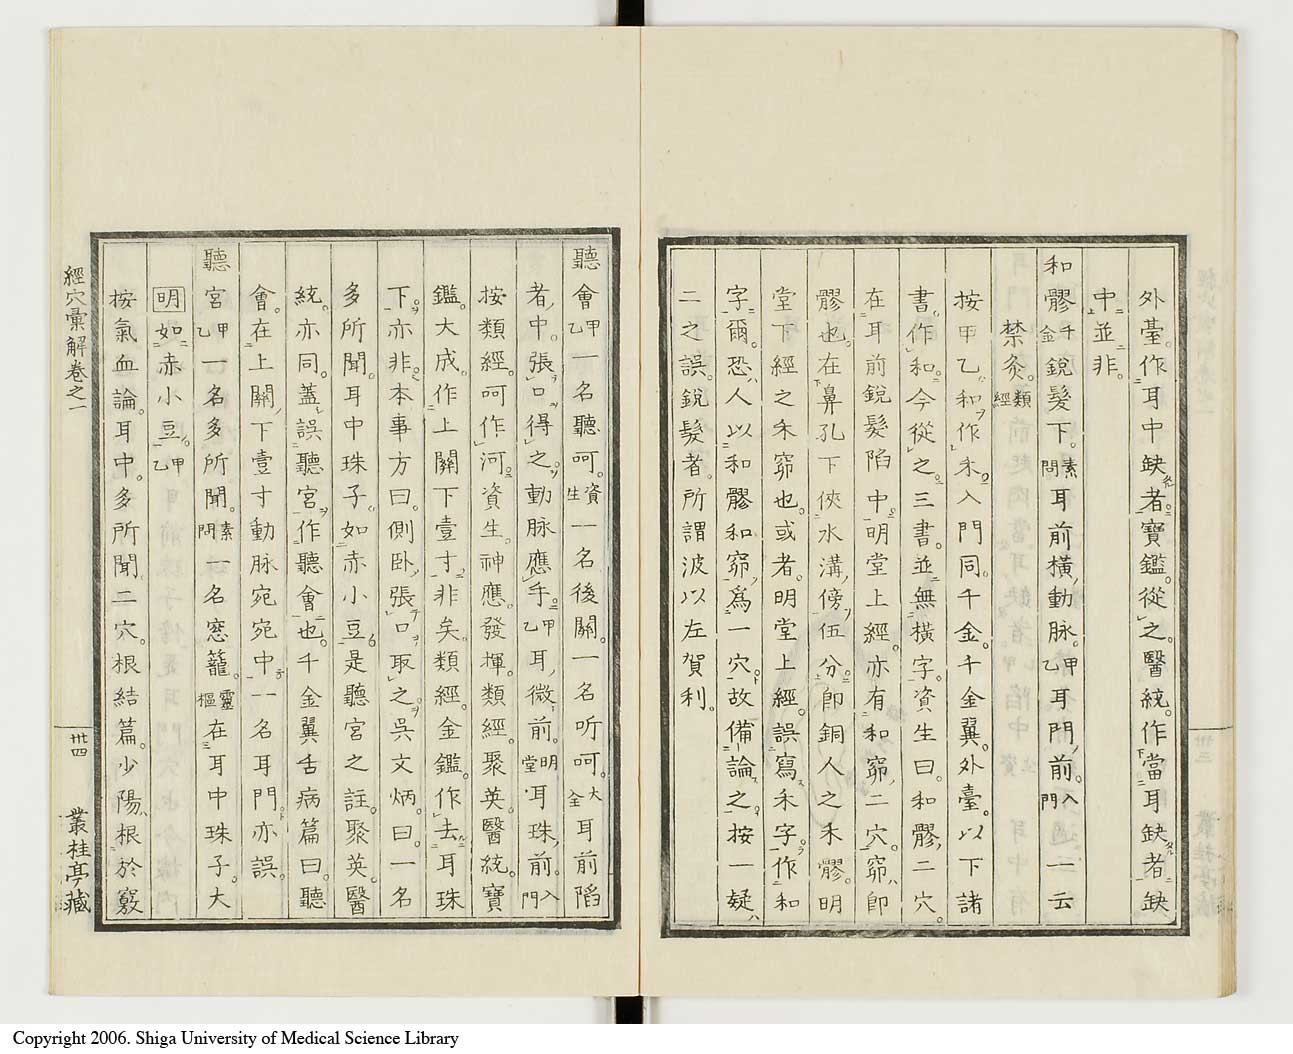 外臺作耳中缺者寶鑑從之醫統作當耳缺者缺
中並非
和髎千金銳髮下素問耳前橫動脈甲乙耳門前入門一云
禁灸類經
按甲乙和作禾入門同千金千金翼外臺以下諸
書作和今從之三書並無橫字資生曰和髎二穴
在耳前銳髮陷中明堂上經亦有和窌二穴窌即
髎也在鼻孔下俠水溝傍伍分即銅人之禾髎明
堂下經之禾窌也或者明堂上經誤寫禾字作和
字爾恐人以和髎和窌爲一穴故備論之按一疑
二之誤銳髮者所謂波以左賀利
聽會甲乙一名聽呵資生一名後關一名听呵大全耳前陷
者中張口得之動脈應手甲乙耳微前明堂耳珠前入門
按類經呵作河資生神應發揮類經聚英醫統寶
鑑大成作上關下壹寸非矣類經金鑑作去耳珠
下亦非本事方曰側卧張口取之吳文炳曰一名
多所聞耳中珠子如赤小豆是聽宮之註聚英醫
統亦同蓋誤聽宮作聽會也千金翼舌病篇曰聽
會在上關下壹寸動脈宛宛中一名耳門亦誤
聽宮甲乙一名多所聞素問一名窓籠靈樞在耳中珠子大
明如赤小豆甲乙
按氣血論耳中多所聞二穴根結篇少陽根於竅
經穴彙解卷之一
卅四
叢桂亭藏
Copyright 2006. Shiga University of Medical Science Library